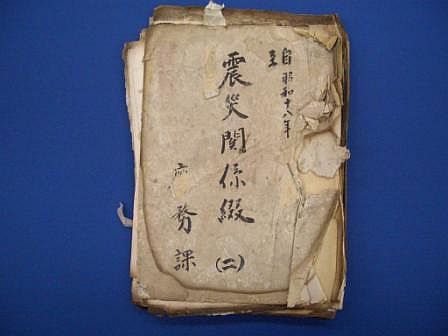 自昭和十八年
至
震災関係綴
(二)
庶務課